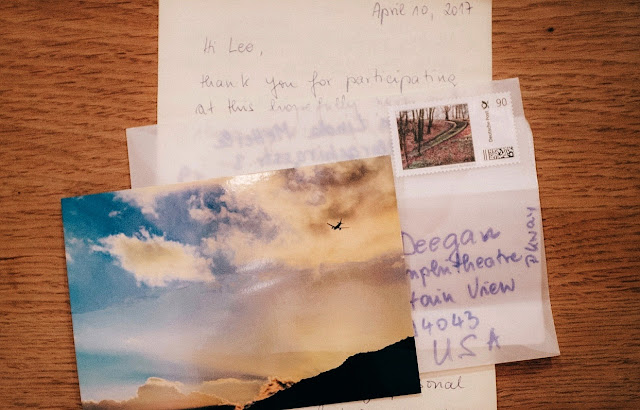 April 10, 2017
Hi Lee,
thank you for participating
at this hopefully
Linda
90
Deutsche Post
Deegan
mphitheatre
pkway
tain View
4043
USA
onal